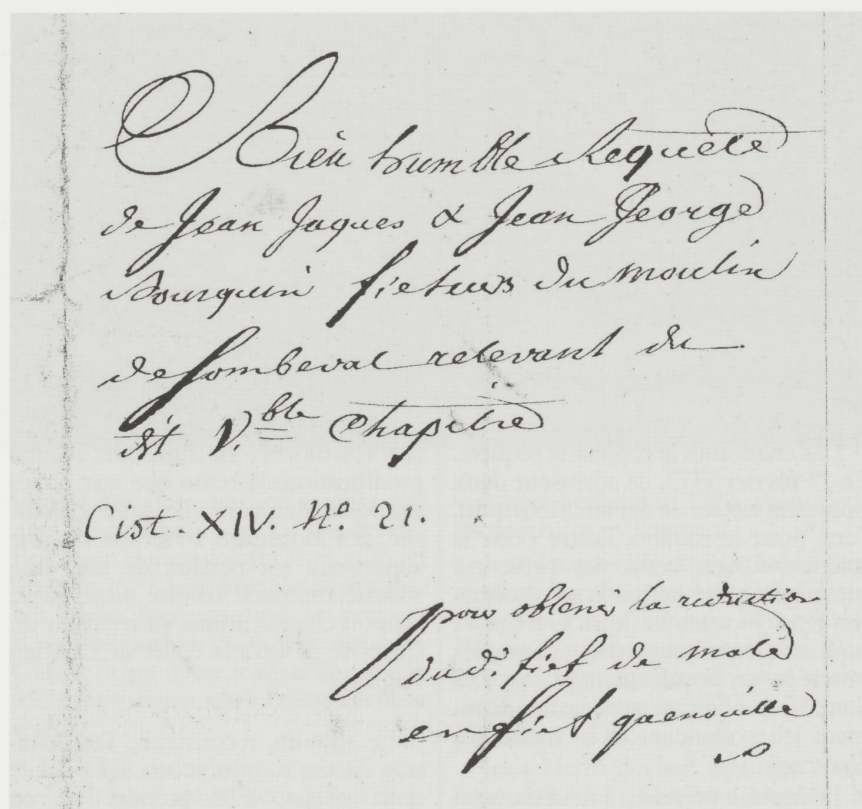 Bien humble Requete
de Jean Jaques & Jean George
Bourquin fieteurs du moulin
de Sombeval relevant du
dit V.ble Chapitre
Cist. XIV. No. 21.
pour obtenir la reduction
dud. fief de male
en fief quenouille